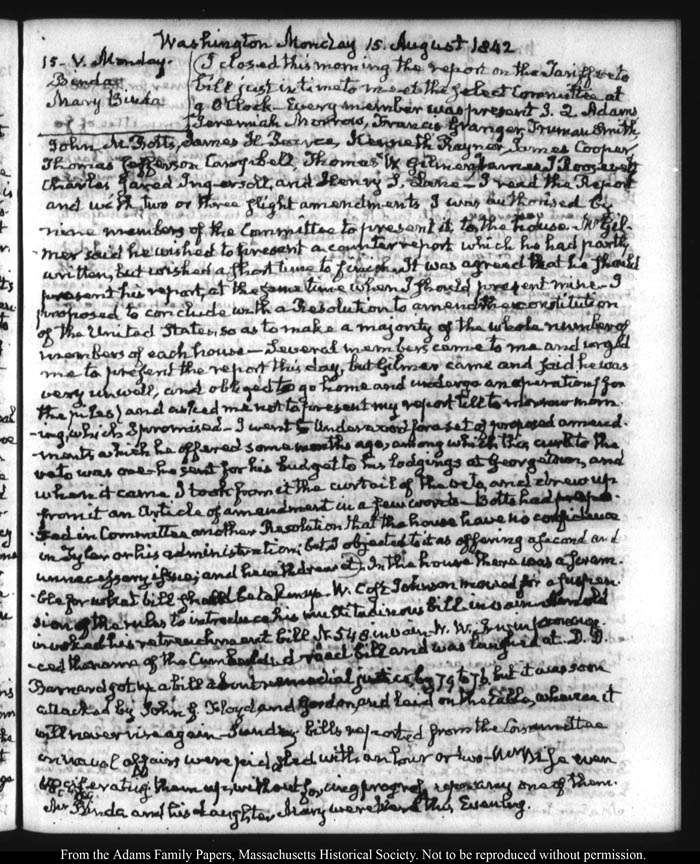 Washington Monday 15. August 1842
15. V. Monday.
Binda.
Mary Binda
I closed this morning the report on the Tariff veto
bill just in time to meet the select Committee at
9 O'Clock. Every member was present J. Q. Adams
Jeremiah Morrow, Francis Granger, Truman Smith,
John M. Botts, James A. Pearce, Kenneth Rayner, James Cooper
Thomas Jefferson Campbell, Thomas W. Gilmer, James I Roosevelt
Charles Jared Ingersoll, and Henry S. Lane — I read the Report
and with two or three slight amendments I was authorised by
nine members of the Committee to present it to the house. Mr Gil-
mer said he wished to present a counter report which he had partly
written, but wished a short time to finish. It was agreed that he should
present his report, at the same time when I should present mine — I
proposed to conclude with a Resolution to amend the constitution
of the United States so as to make a majority of the whole number of
members of each house — Several members came to me and urged
me to present the report this day, but Gilmer came and said he was
very unwell, and obliged to go home and undergo an operation (for
the piles) and asked me not to present my report till to-morrow morn-
-ing, which I promised — I went to Underwood for a set of proposed amend-
ments which he offered some months ago, among which this curb to the
veto was one — he sent for his budget to his lodgings at Georgetown, and
when it came I took from it the curtail of the veto, and drew up
from it an Article of amendment in a few words — Botts had propo-
-sed in Committee another Resolution that the house have no confidence
in Tyler or his administration; but I objected to it as offering a second and
unnecessary issue; and he withdrew it. In the house there was a scram-
ble for what bill should be taken up. W. Cost Johnson moved for a suspen-
sion of the rules to introduce his multitudinous bill in vain — Arnold
invoked his retrenchment bill N. 548. in vain — W. W.
-ced the name of the Cumberland road bill and was laughed at. D. D.
Barnard got up a bill about remedial justice, by 79 to 76, but it was soon
attacked by John G. Floyd and Gordon, and laid on the table, whence it
will never rise again — Sundry bills reported from the Committee
on naval affairs were piddled with an hour or two — Wise even
vociferating them up; without forcing progress upon any one of them.
Mr Binda and his daughter Mary were here this Evening.
From the Adams Family Papers, Massachusetts Historical Society. Not to be reproduced without permission.